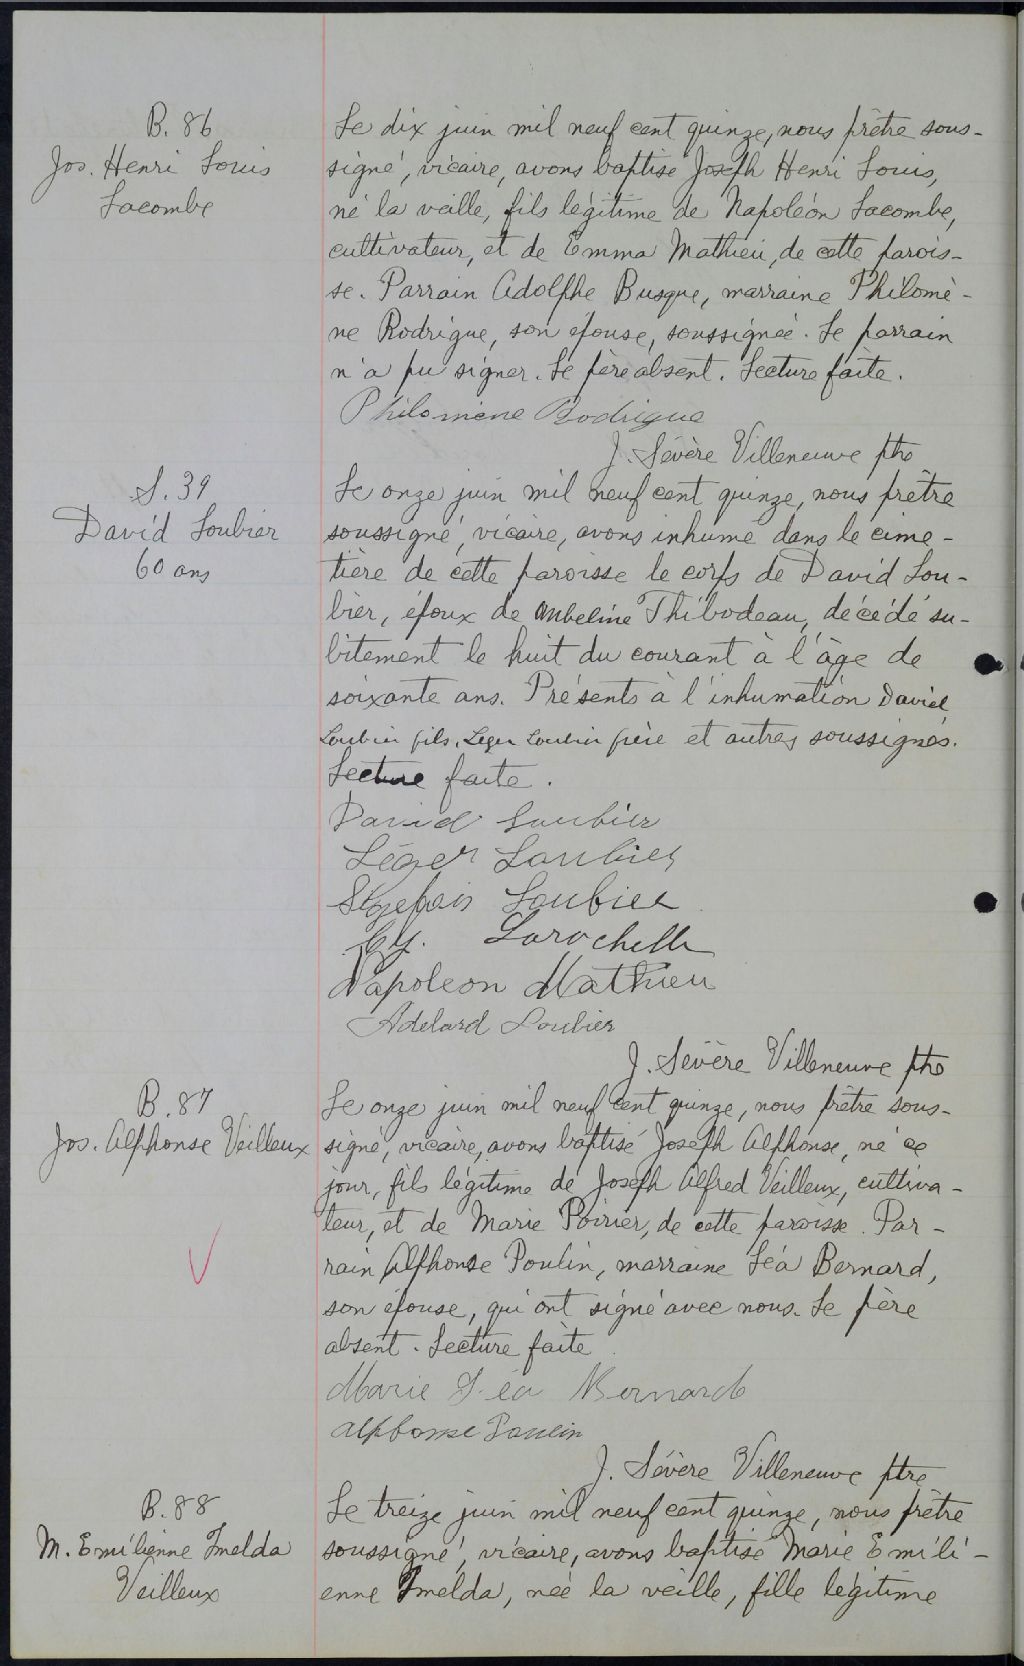 B. 86
Jos. Henri Louis
Lacombe
Le dix juin mil neuf cent quinze, nous prêtre sous-
signé, vicaire, avons baptisé Joseph Henri Louis,
né la veille, fils légitime de Napoléon Lacombe,
cultivateur, et de Emma Mathieu, de cette parois-
se. Parrain Adolphe Busque, marraine Philomè-
ne Rodrigue, son épouse, soussignée. Le parrain
n'a pu signer. Le père absent. Lecture faite.
Philomène Rodrigue
J. Sévère Villeneuve ptre
S. 39
David Loubier
60 ans
Le onze juin mil neuf cent quinze, nous prêtre
soussigné, vicaire, avons inhumé dans le cime-
tière de cette paroisse le corps de David Lou-
bier, époux de Ombeline Thibodeau, décédé su-
bitement le huit du courant à l'âge de
soixante ans. Présents à l'inhumation David
Loubier fils, Léger Loubier frère et autres soussignés.
Lecture faite.
David Loubier
Léger Loubier
Loubier
Larochelle
Napoleon Mathieu
Adelard Loubier
J. Sévère Villeneuve ptre
B. 87
Jos. Alphonse Veilleux
Le onze juin mil neuf cent quinze, nous prêtre sous-
signé, vicaire, avons baptisé Joseph Alphonse, né ce
jour, fils légitime de Joseph Alfred Veilleux, cultiva-
teur, et de Marie Poirier, de cette paroisse. Par-
rain Alphonse Poulin, marraine Léa Bernard,
son épouse, qui ont signé avec nous. Le père
absent. Lecture faite.
Marie Léa Bernard
Alphonse Poulin
J. Sévère Villeneuve ptre
B. 88
M. Emilienne Imelda
Veilleux
Le treize juin mil neuf cent quinze, nous prêtre
soussigné, vicaire, avons baptisé Marie Emili-
enne Imelda, née la veille, fille légitime